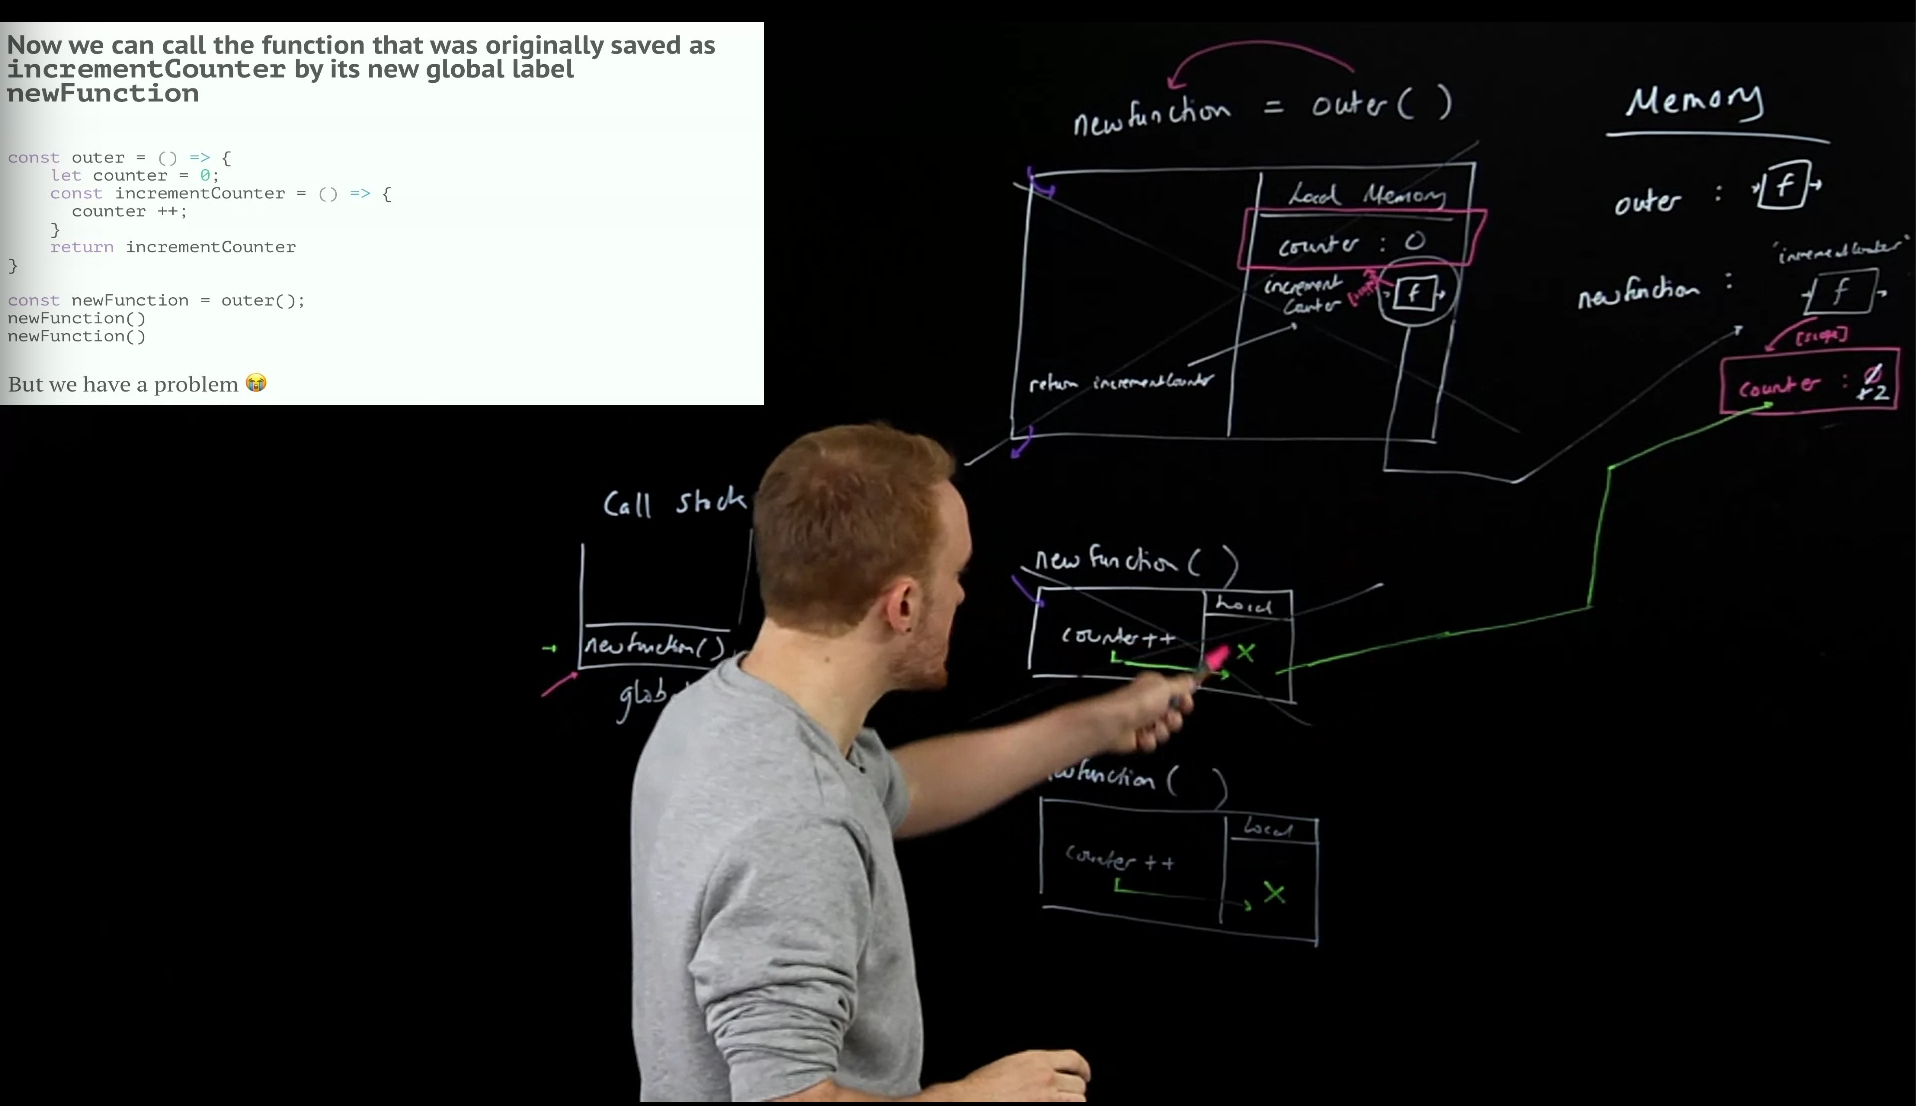 Now we can call the function that was originally saved as
incrementCounter by its new global label
newFunction
const outer = () => {
let counter = 0;
const incrementCounter = () => {
counter ++;
}
return incrementCounter
}
const newFunction = outer();
newFunction()
newFunction()
But we have a problem 😭
newfunction = outer( )
Local Memory
counter : 0
increment
Counter
f
return incrementCounter
Memory
outer : f
"incrementCounter"
newfunction : f
[scope]
counter : 0
2
Call Stack
newfunction()
glob
newfunction( )
Local
counter++
X
wfunction( )
Local
counter++
X